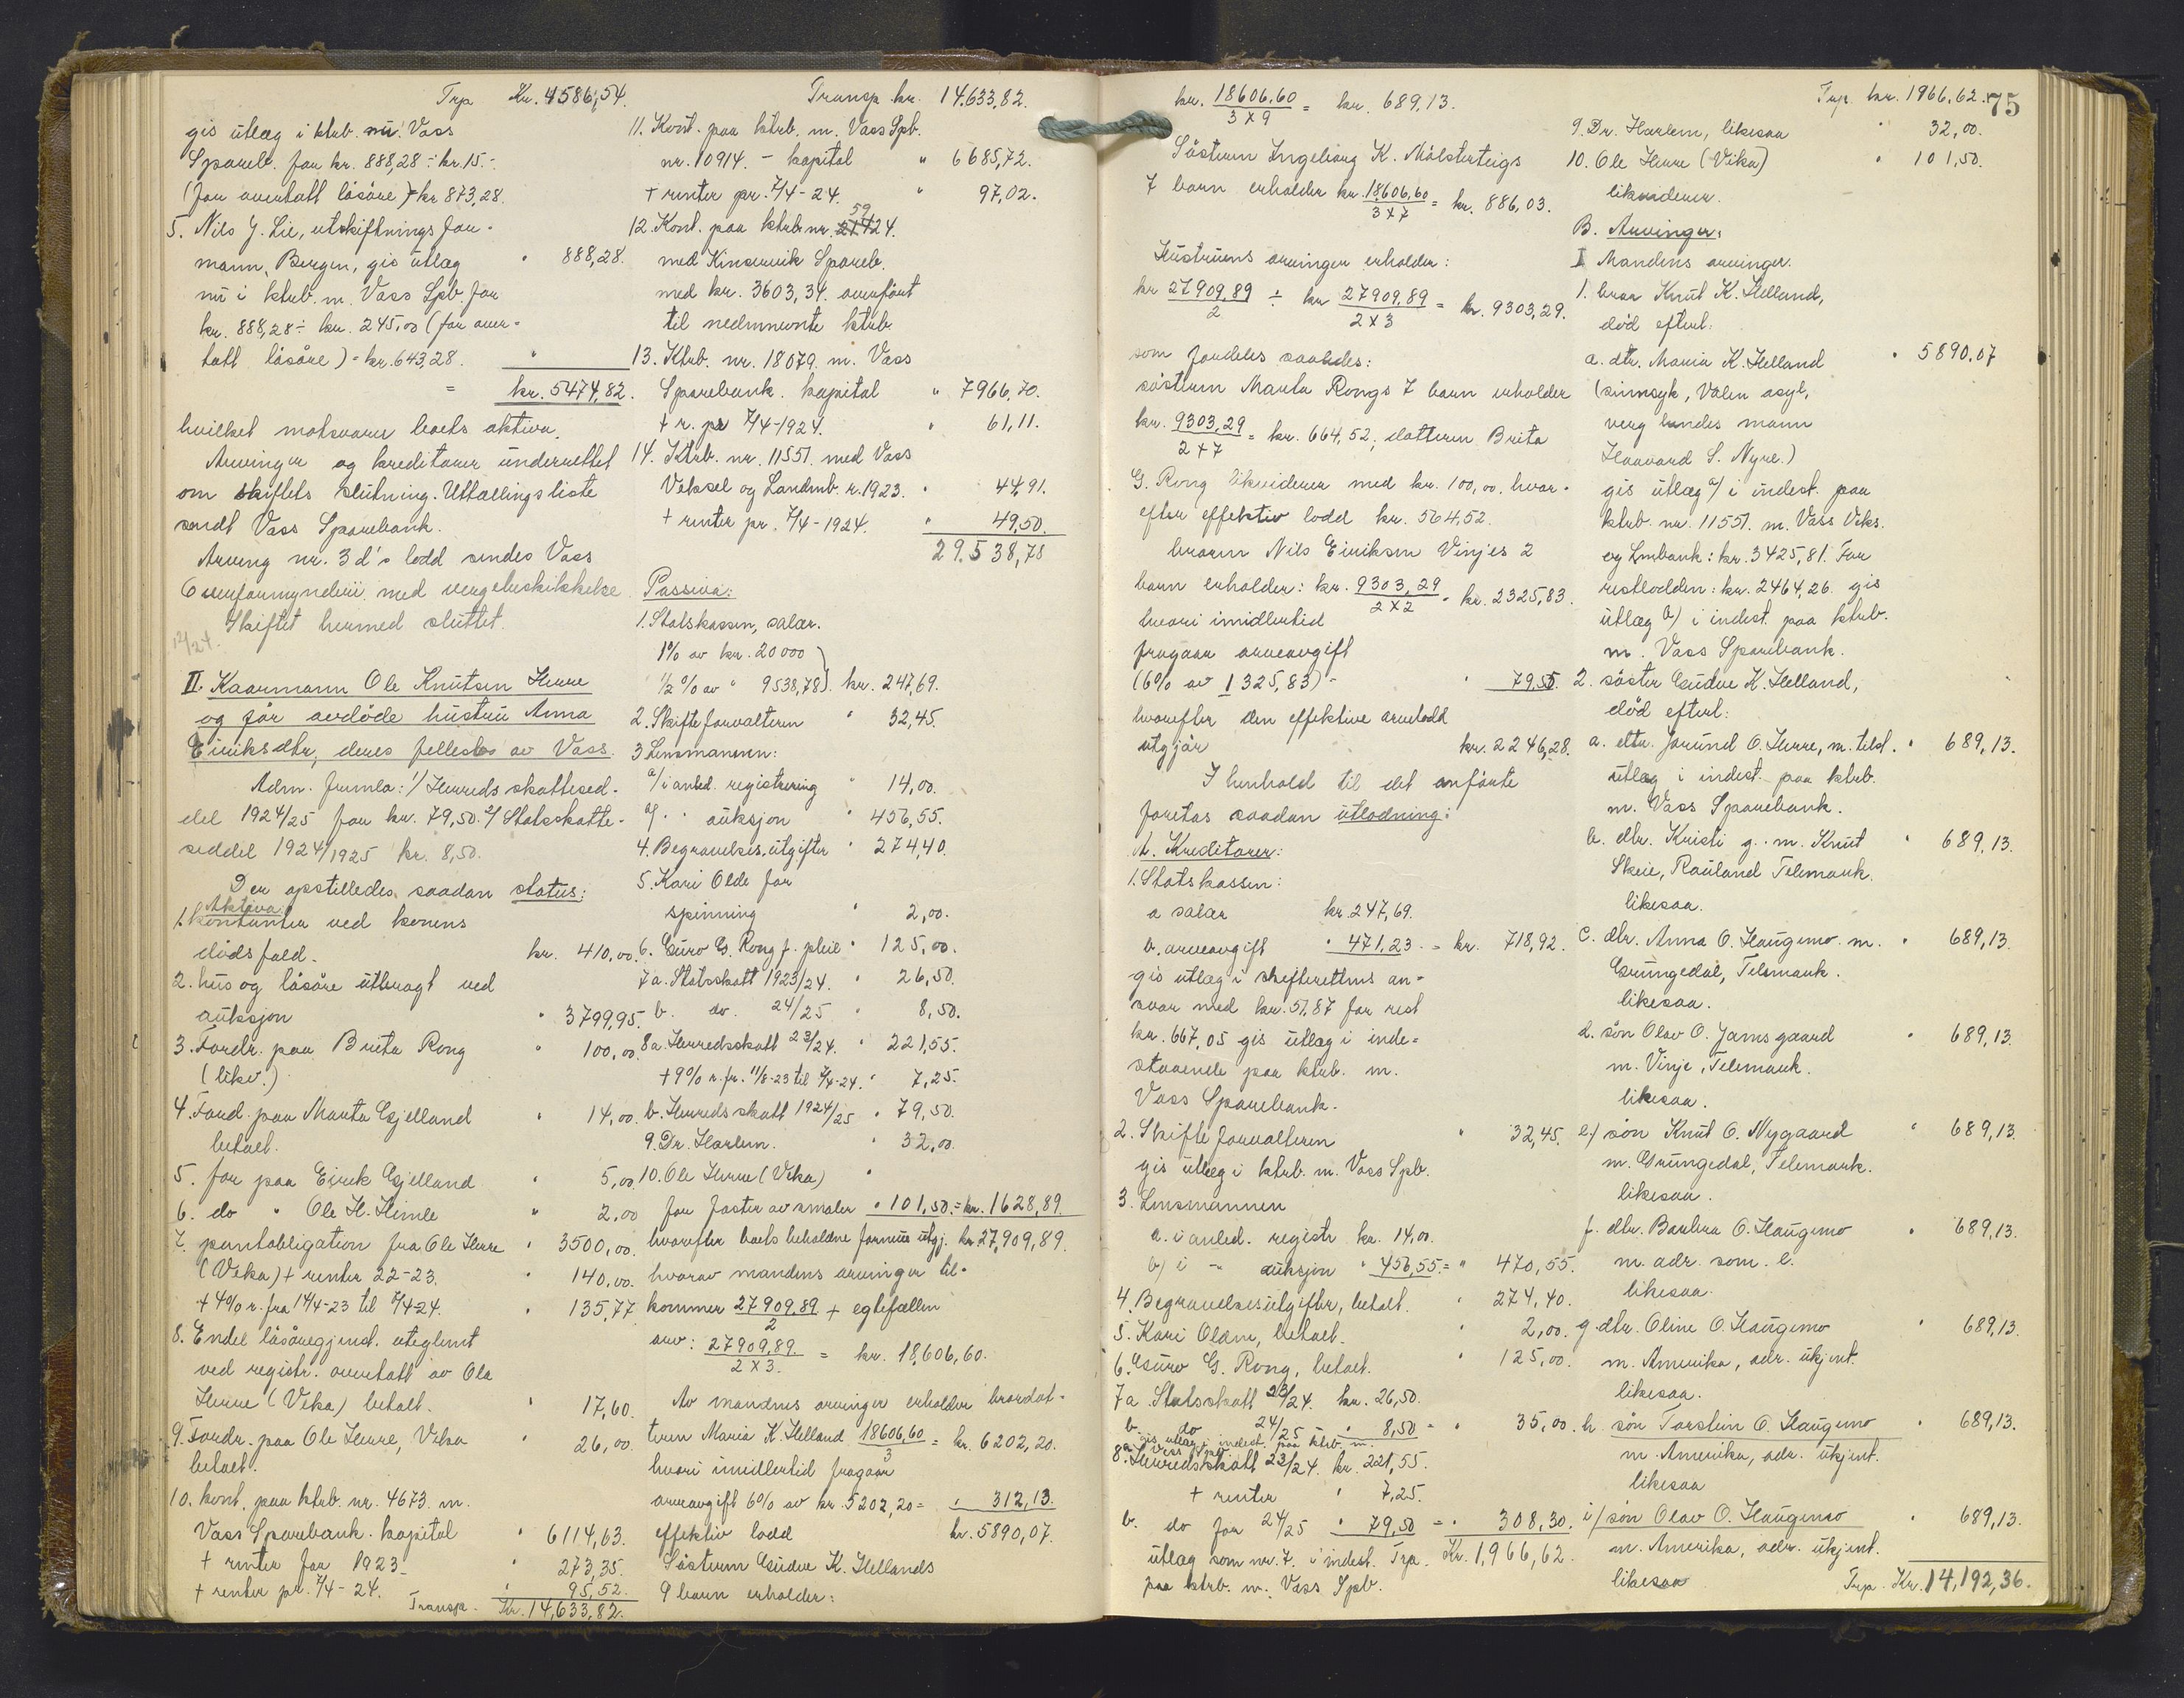 Trp Kr. 4586,54.
gis utlæg i ktrb. m. Vass
Spareb. for kr. 888,28 ÷ kr. 15.-
(for overtatt lösöre) = kr 873,28.
5. Nils J. Lie, utskiftnings for-
mann, Bergen, gis utlæg " 888,28.
nu i ktrb. m. Vass Spb. for
kr. 888,28 ÷ kr. 245,00 (for over-
tatt lösöre) = kr. 643,28. "
= kr. 5474,82.
hvilket motsvarer boets aktiva.
Arvinger og kreditorer underrettet
om skiftets slutning. Utlællingsliste
sendt Vass Sparebank.
Arving nr. 3 d's lodd sendes Vass
Overformynderi med vergebeskikkelse
Skiftet hermed sluttet.
12/24.
II. Kaarmann Ole Knutsen Herre
og för avdöde hustru Anna
Eiriksdtr, deres fellesbo av Vass.
Adm. fremla: 1/ Herredsskattesed-
del 1924/25 for kr. 79,50. 2/ Statsskatte-
seddel 1924/1925 kr. 8,50.
Der opstilledes saadan status:
Aktiva:
1. kontanter ved konens
dödsfald. kr. 410,00.
2. hus og lösöre utbragt ved
auksjon " 3799,95.
3. Fordr. paa Brita Rong " 100,00.
(likv.)
4. Ford. paa Marta Gjelland " 14,00.
betalt.
5. for paa Eirik Gjelland " 5,00
6. do " Ole H. Himle " 2,00
7. pantobligation fra Ole Herre " 3500,00.
(Vika) + renter 22-23. " 140,00.
+ 4% r. fra 14/4-23 til 7/4-24. " 135,77
8. Endel lösöregjenst. uteglemt
ved registr. overtatt av Ole
Herre (Vika) betalt. " 17,60.
9. Fordr. paa Ole Herre, Vika " 26,00.
betalt.
10. kont. paa ktrb. nr. 4673 m.
Vass Sparebank. kapital " 6114,63.
+ renter for 1923 " 273,35.
+ renter pr. 7/4-24. " 95,52.
Transp. Kr. 14,633,82.
Transp. kr. 14.633,82.
11. Kont. paa ktrb. m. Vass Spb.
nr. 10914. - kapital " 6685,72.
+ renter pr. 7/4-24. " 97,02.
12. Kont. paa ktrb. nr. 5924.
med Kinservik Spareb.
med kr. 3603,34. overfört
til nedennevnte ktrb.
13. Ktrb. nr. 18079. m. Vass
Sparebank. kapital " 7966,70.
+ r. pr 7/4-1924. " 61,11.
14. Ktrb. nr. 11551 med Vass
Veksel og Landmb. r. 1923. " 44,91.
+ renter pr. 7/4-1924. " 49,50.
29.538,78
Passiva:
1. Statskassen, salær.
1% av kr. 20000
1/2% av " 9538,78). kr. 247,69.
2. Skifteforvalteren " 32,45.
3 Lensmannen:
a/ i anled. registrering " 14,00.
a/ " " auksjon " 456,55.
4. Begravelses.utgifter " 274,40.
5. Kari Olde for
spinning " 2,00.
6. Guro G. Rong f. pleie " 125,00.
7 a. Statsskatt 1923/24. " 26,50.
b. do. 24/25 " 8,50.
8 a. Herredsskatt 23/24. " 221,55.
+ 9% r. fr. 11/8-23 til 7/4-24. " 7,25.
b. Herredsskatt 1924/25 " 79,50.
9. Dr. Harlem. " 32,00.
10. Ole Herre (Vika) "
for foster av smaler " 101,50. = kr. 1628,89.
hvorefter boets beholdne formue utgj. kr. 27,909,89.
hvorav mandens arvinger til-
kommer 27909,89/2 + egtefællen
arv: 27909,89/2 x 3 = kr. 18,606,60.
Av mandens arvinger erholder brordat-
teren Maria K. Helland 18606,60/3 = kr. 6202,20.
hvori imidlertid fragaar
arveavgift 6% av kr. 5202,20 = " 312,13.
effektiv lodd kr. 5890,07.
Söstrene Gudve K. Hellands
9 barn erholder:
kr. 18606,60/3 x 9 = kr. 689,13.
Söstrene Ingeborg K. Mölsterteigs
7 barn erholder kr. 18,606,60/3 x 7 = kr. 886,03.
Hustruens arvinger erholder:
kr 27909,89/2 ÷ kr 27909,89/2 x 3 = kr. 9303,29.
som fordeles saaledes:
söstrene Marta Rongs 7 barn erholder
kr. 9303,29/2 x 7 = kr. 664,52, datteren Brita
G. Rong likviderer med kr. 100,00, hvor-
efter effektiv lodd kr. 564,52.
broren Nils Eiriksen Vinjes 2
barn erholder: kr. 9303,29/2 x 2 = kr. 2325,83.
hvori imidlertid
fragaar arveavgift
(6% av 1325,83) = " 79,55.
hvorefter den effektive arvelodd
utgjör kr. 2246,28.
I henhold til det anförte
foretas saadan utlodning:
A. Kreditorer:
1. Statskassen:
a salær kr. 247,69.
b. arveavgift " 471,23. = kr. 718,92.
gis utlæg i skifterettens an-
svar med kr. 51,87 for rest
kr. 667,05 gis utlæg i inde-
staaende paa ktrb. m.
Vass Sparebank.
2. Skifteforvalteren " 32,45.
gis utlæg i ktrb. m. Vass Spb.
3. Lensmannen
a. i anled. registr. kr. 14,00.
b) i - auksjon " 456,55. = " 470,55.
4. Begravelsesutgifter, betalt. " 274,40.
5. Kari Oldne, betalt. " 2,00.
6. Guro G. Rong, betalt. " 125,00.
7 a. Statsskatt 23/24. kr. 26,50.
b. do 24/25 " 8,50 = " 35,00.
gis utlæg i indest. paa ktrb. m.
Vass Spb.
8 a. Herredsskatt 23/24. kr. 221,55.
+ renter " 7,25.
b. do for 24/25 " 79,50 = " 308,30.
utlæg som nr. 7. i indest. Trp. Kr. 1,966,62.
paa ktrb. m. Vass Spb.
Trp. kr. 1966,62.
75
9. Dr. Harlem, likesaa " 32,00.
10. Ole Herre (Vika) " 101,50.
likviderer.
B. Arvinger:
I Mandens arvinger.
1. bror Knut K. Helland,
död efterl.
a. dtr. Maria K. Helland " 5890,07
(sinnsyk, Valen asyl,
verg landes mann
Haavard S. Nyre.)
gis utlæg a/ i indest. paa
ktrb. nr. 11551. m. Vass Veks.
og Lmbank: kr. 3425,81. For
restlodden: kr. 2464,26. gis
utlæg b) i indest. paa ktrb.
m. Vass Sparebank.
2. söster Gudve K. Helland,
död efterl:
a. dtr. Jorund O. Herre, m. teld. " 689,13.
utlæg i indest. paa ktrb.
m. Vass Sparebank.
b. dtr. Kristi g. m. Knut " 689,13.
Skeie, Rauland Telemark.
likesaa.
c. dtr. Anna O. Haugmo m. " 689,13.
Grungedal, Telemark.
likesaa.
d. sön Olav O. Jamsgaard " 689,13.
m. Vinje, Telemark.
likesaa.
e) sön Knut O. Nygaard " 689,13.
m. Grungedal, Telemark.
likesaa.
f. dtr. Barbra O. Haugmo " 689,13.
m. adr. som. e.
likesaa.
g. dtr. Oline O. Haugmo " 689,13.
m. Amerika, adr. ukjent.
likesaa.
h. sön Torstein O. Haugmo " 689,13.
m. Amerika, adr. ukjent.
likesaa
i/ sön Olav O. Haugmo " 689,13.
m. Amerika, adr. ukjent.
likesaa Trp. Kr. 14,192,36.